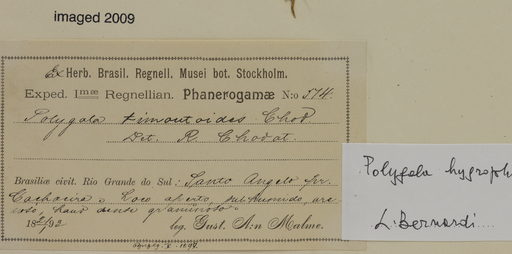 imaged 2009
Ex Herb. Brasil. Regnell. Musei bot. Stockholm.
Exped. Imæ Regnellian. Phanerogamæ N:o 514.
Polygala timoutoides Chod.
Det. R. Chodat.
Brasiliæ civit. Rio Grande do Sul: Santo Angelo pr.
Cachoeira, loco aperto, subhumido, are-
noso, haud dense graminoso.
18 93 leg. Gust. A:n Malme.
Polygala hygroph
L. Bernardi